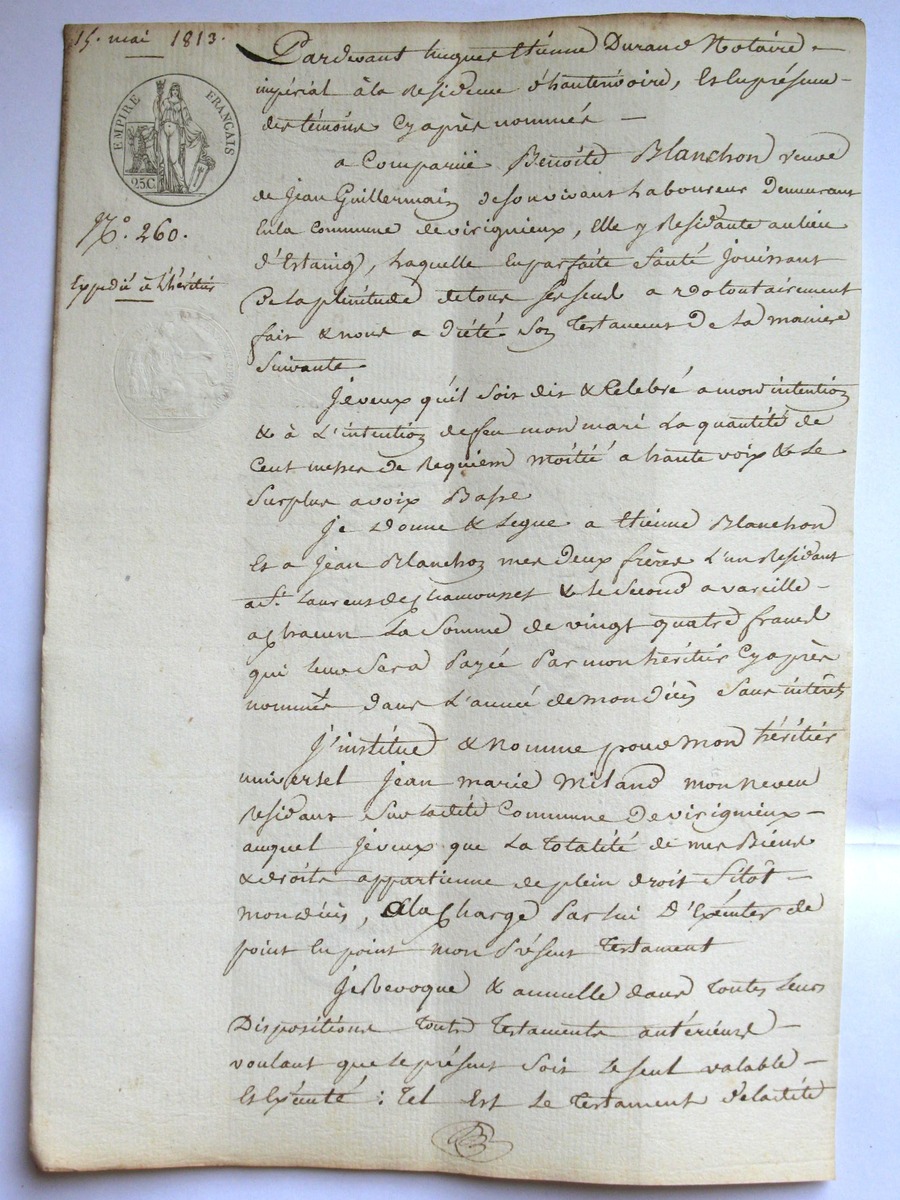 15. mai 1813.
EMPIRE FRANÇAIS
25C.
N.° 260.
Expédié à l'héritier
Pardevant hugues Etienne Durand Notaire
impérial à la Residence d'hauterivoire, Et En présence
des témoins Cyaprès nommés
a Comparüe Benoîte Blanchon veuve
de Jean Guillermain de son vivant Laboureur Demeurant
En la Commune de virignieux, Elle y Residante au lieu
d'Estaing, Laquelle En parfaite Santé Jouissant
De la plénitude de tous Ses sens a volontairement
fait & nous a dicté Son Testament De La maniere
Suivante
Je veux qu'il Soit dit & Celebré a mon intention
& à L'intention de feu mon mari La quantité de
Cent messes de Requiem moitié a haute voix & Le
Surplus a voix Basse
Je Donne & Legue a Etienne Blanchon
Et a Jean Blanchon mes Deux frères L'un Residant
a St. Laurent de Chamousset & le Second a vareille
a Chacun La Somme de vingt quatre francs
qui leur Sera Payée Par mon héritier Cyaprès
nommé dans L'année de mon décès Sans intérêts
J'institue & Nomme pour mon héritier
universel Jean marie Miland mon neveu
Residant Sur ladite Commune De virignieux
auquel Je veux que La Totalité de mes Biens
& droits appartienne de plein droit Sitôt
mon décès, a la Charge Par lui D'Exécuter de
point En point mon Présent Testament
Je Revoque & annulle dans Toutes Leurs
Dispositions Tous Testaments antérieurs
voulant que le présent Soit Le Seul valable
Et Exécuté : Tel Est Le Testament De ladite